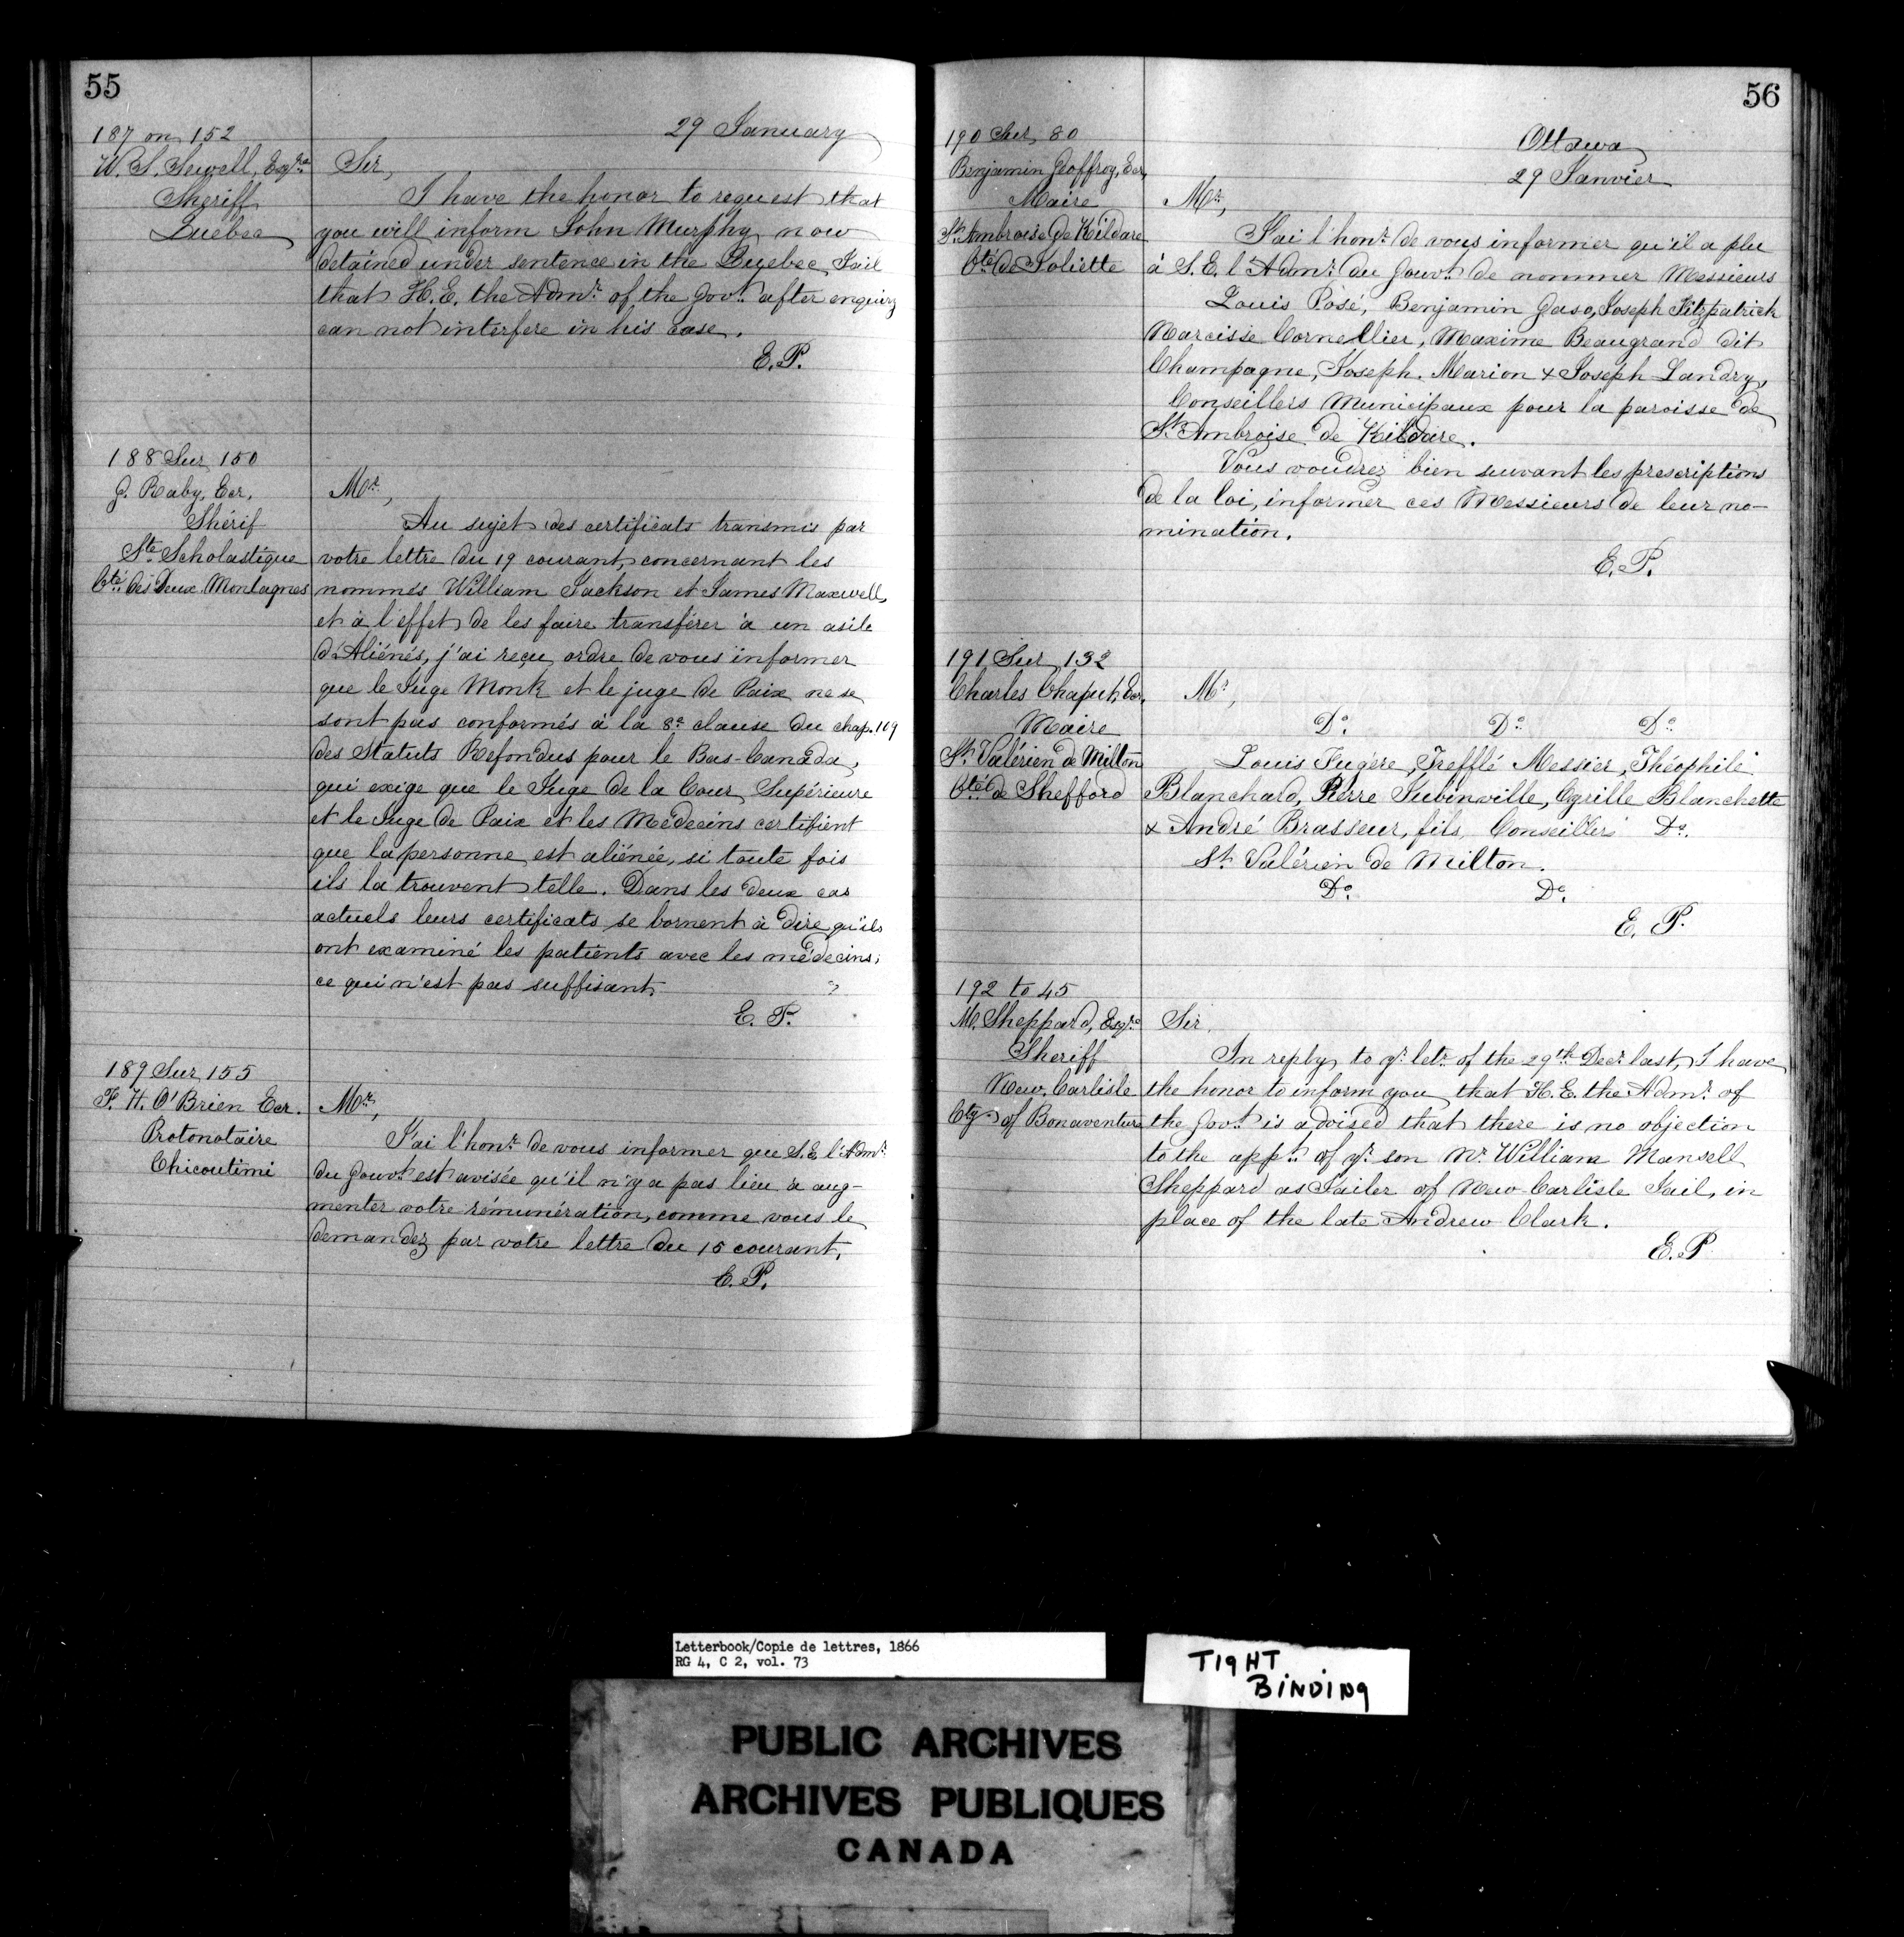 55
29 January
187 on 152
W. S. Sewell, Esqre
Sheriff
Quebec
Sir,
I have the honor to request that
you will inform John Murphy now
detained under sentence in the Quebec Jail
that H.E. the Admr. of the Govt. after enquiry
can not interfere in his case.
E.P.
188 Sur 150
J. Raby, Ecr,
Shérif
Ste. Scholastique
Cté. des Deux Montagnes
Mr.,
Au sujet des certificats transmis par
votre lettre du 19 courant, concernant les
nommés William Jackson et James Maxwell,
et à l'effet de les faire transférer à un asile
d'Aliénés, j'ai reçu ordre de vous informer
que le Juge Monk et le juge de Paix ne se
sont pas conformés à la 8e clause du chap. 109
des Statuts Refondus pour le Bas-Canada,
qui exige que le Juge de la Cour Supérieure
et le Juge de Paix et les Médecins certifient
que la personne est aliénée, si toute fois
ils la trouvent telle. Dans les deux cas
actuels leurs certificats se bornent à dire qu'ils
ont examiné les patients avec les médecins;
ce qui n'est pas suffisant
E. P.
189 Sur 155
F. H. O'Brien Ecr.
Protonotaire
Chicoutimi
Mr.,
J'ai l'honr. de vous informer que S.E. l'Admr.
du Gouvt. est avisée qu'il n'y a pas lieu à aug-
menter votre rémunération, comme vous le
demandez par votre lettre du 15 courant.
E. P.
56
Ottawa
29 Janvier
190 Sur 80
Benjamin Geoffroy, Ecr,
Maire
St. Ambroise de Kildare
Cté. de Joliette
Mr.,
J'ai l'honr. de vous informer qu'il a plu
à S.E. l'Admr. du Gouvt. de nommer Messieurs
Louis Posé, Benjamin Gaso, Joseph Fitzpatrick
Narcisse Cornellier, Maxime Beaugrand dit
Champagne, Joseph Marion & Joseph Landry,
Conseillers Municipaux pour la paroisse de
St. Ambroise de Kildare.
Vous voudrez bien suivant les prescriptions
de la loi, informer ces Messieurs de leur no-
mination.
E. P.
191 Sur 132
Charles Chaput, Ecr.
Maire
St. Valérien de Milton
Cté. de Shefford
Mr.,
Do. Do. Do.
Louis Fugère, Trefflé Messier, Théophile
Blanchard, Pierre Jubinville, Cyrille Blanchette
& André Brasseur, fils, Conseillers Do.
St. Valérien de Milton.
Do. Do.
E. P.
192 to 45
M. Sheppard, Esqre
Sheriff
New Carlisle
Cty. of Bonaventure
Sir,
In reply to yr. letr. of the 29th Decr. last, I have
the honor to inform you that H.E. the Admr. of
the Govt. is advised that there is no objection
to the appt. of yr. son Mr. William Mansell
Sheppard as Jailer of New Carlisle Jail, in
place of the late Andrew Clark.
E. P
Letterbook/Copie de lettres, 1866
RG 4, C 2, vol. 73
TIGHT
BINDING
PUBLIC ARCHIVES
ARCHIVES PUBLIQUES
CANADA